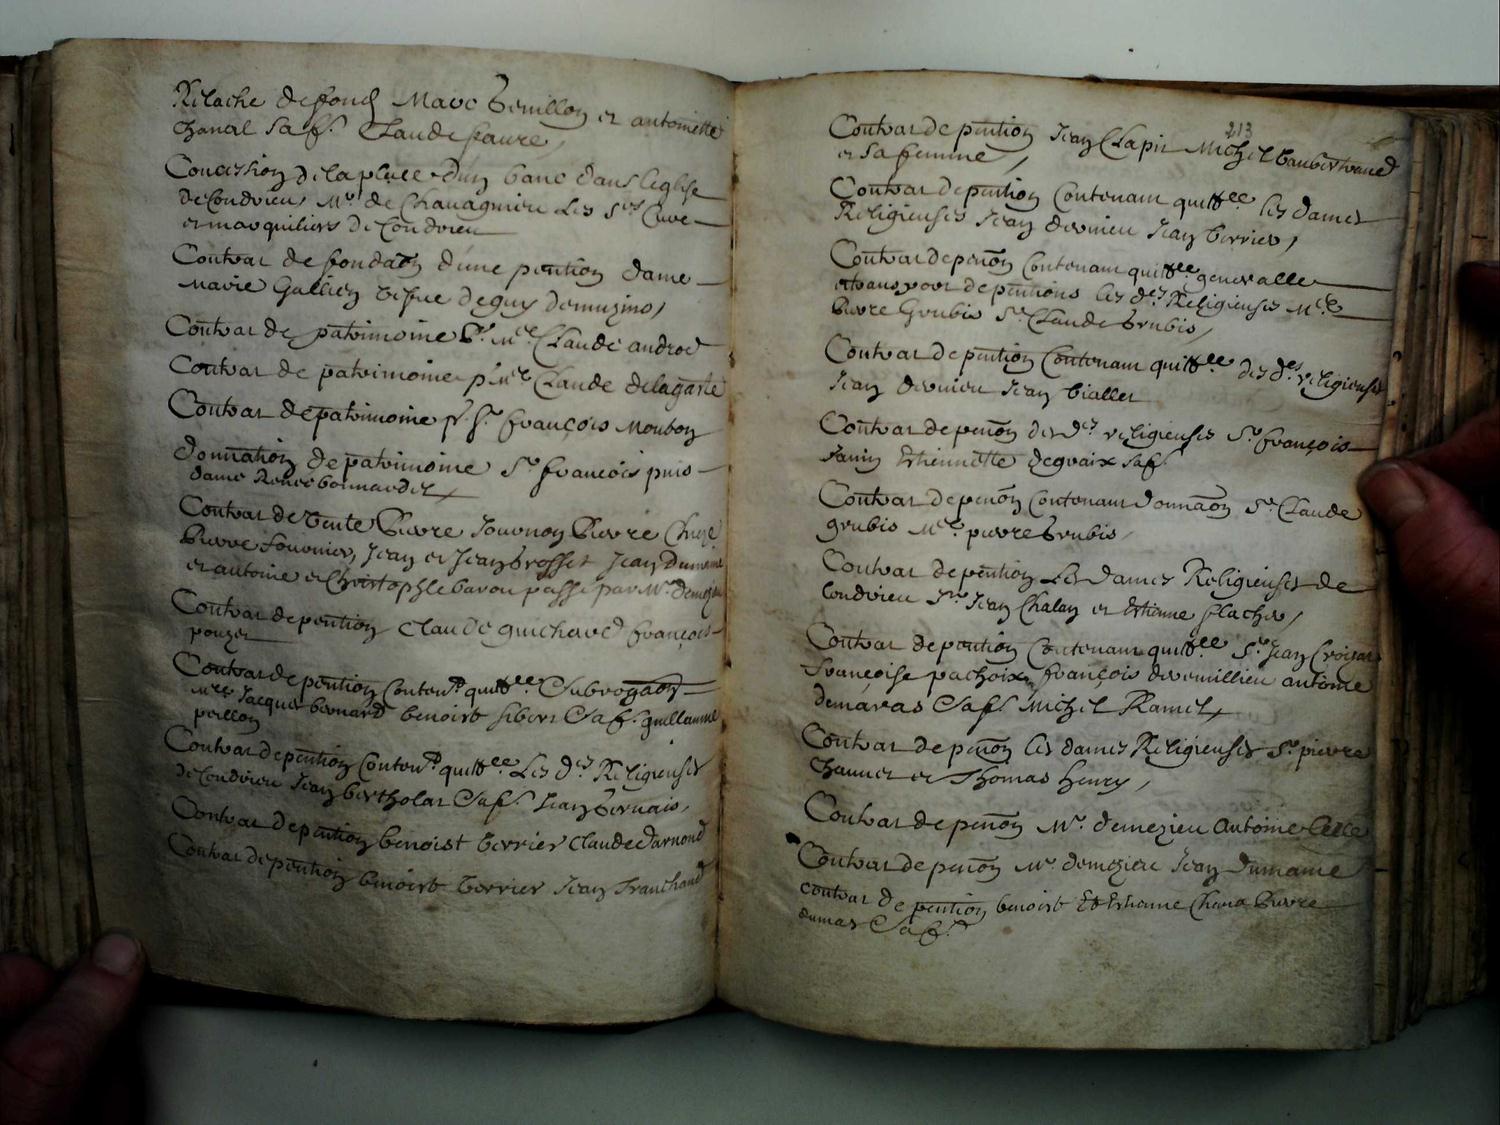 Relache de fond Marc Benillon et antoinette
Chanal Sa f.e Claude faure,
Concession de la place dun banc dans leglise
de Condrieu, Mr. de Chavagnieu Les Srs Cure
et marguiliers de Condrieu
Contrat de fondaon d'une pention dame
Marie Gallien vefue de guy demezino,
Contrat de patrimoine Mre Claude androd
Contrat de patrimoine p. Mre Claude delagarde
Contrat de patrimoine pr. Sr. françois Mouton
donnation de patrimoine Sr françois puis
dame Renee bonnardel
Contrat de Vente Pierre Journon Pierre
Pierre fournier, Jean et Jean brosset Jean Dumaine
et antoine et Christophle baron passé par Mr. demezieu
Contrat de pention Claude guichard françois
pouzet
Contrat de pention Conten.t quitt.ce Subrogaon
Mre Jacques bernard benoist sibert Sa f.e guillaume
peillon
Contrat de pention Conten.t quitt.ce Les des Religieuses
de Condrieu Jean bertholat Sa f.e Jean Gervais,
Contrat de pention benoist Verrier Claude darnoud
Contrat de pention benoist Verrier Jean Franchand
213
Contrat de pention Jean Clapit Michel
et sa femme,
Contrat de pention Contenant quitt.ce les dames
Religieuses Jean dervieu Jean Verrier,
Contrat de penon Contenant quitt.ce generalle
et transport de pentions les des Religieuses Mre
Pierre Grubis Sr. Claude Grubis,
Contrat de pention Contenant quitt.ce des des religieuses
Jean dervieu Jean Viallet
Contrat de penon des des religieuses Sr françois
Janin Estiennette degraix sa f.e
Contrat de penon Contenant donnaon Sr. Claude
grubis Mre pierre Grubis
Contrat de pention Les Dames Religieuses de
Condrieu Sr. Jean Chalan et Estienne flacher,
Contrat de pention Contenant quitt.ce Sr. Jean
françoise pachoix françois dervieu antoine
demaras Sa f.e Michel Ramel
Contrat de penon les dames Religieuses Sr. pierre
Chaunet et Thomas henry,
Contrat de penon Mr. demezieu Antoine Celle
Contrat de penon Mr demezieu Jean Dumaine
Contrat de pention benoist Et Estienne Chana Pierre
dumas Sa f.e